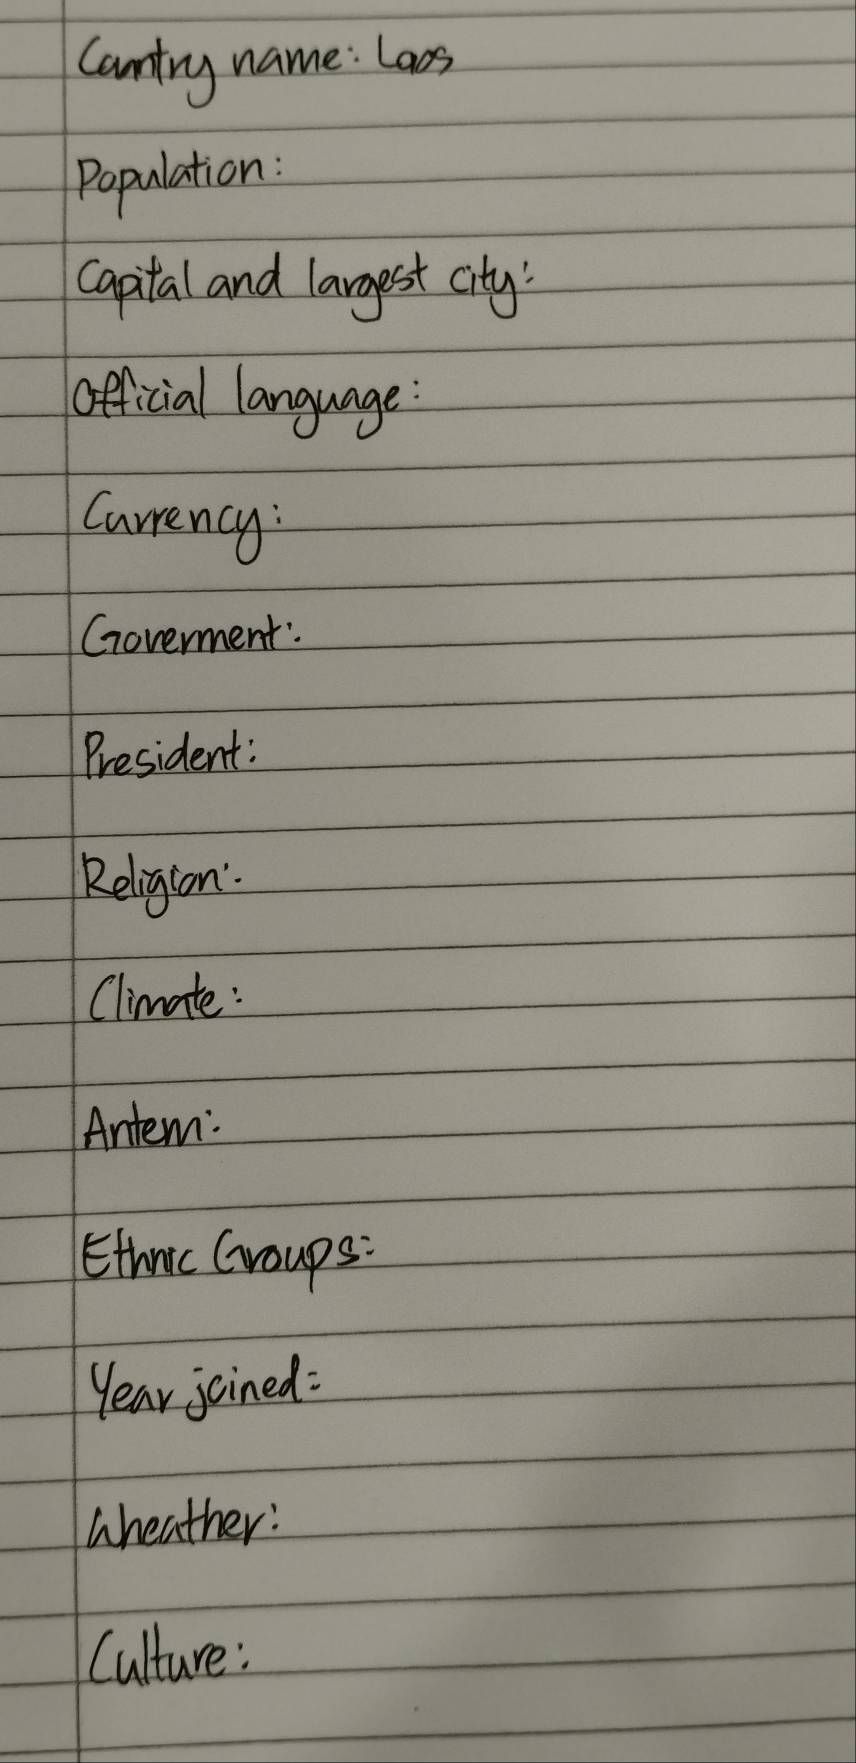 Country name: Laos
Population:
Capital and largest city:
Official language:
Currency:
Goverment:
President:
Religion:
Climate:
Antem:
Ethnic Groups:
Year joined:
Wheather:
Culture: